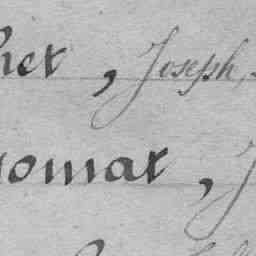 het, Joseph,
omat, J